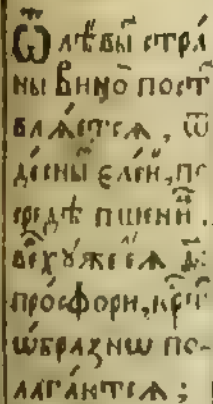 Ѿ лѣвы стра
ны вино пост
влѧетсѧ, ѿ
десны елей, по
средѣ пшени
верхꙋ же еѧ
просфори, крⷭ
ѡбразнѡ по-
лагаютсѧ;